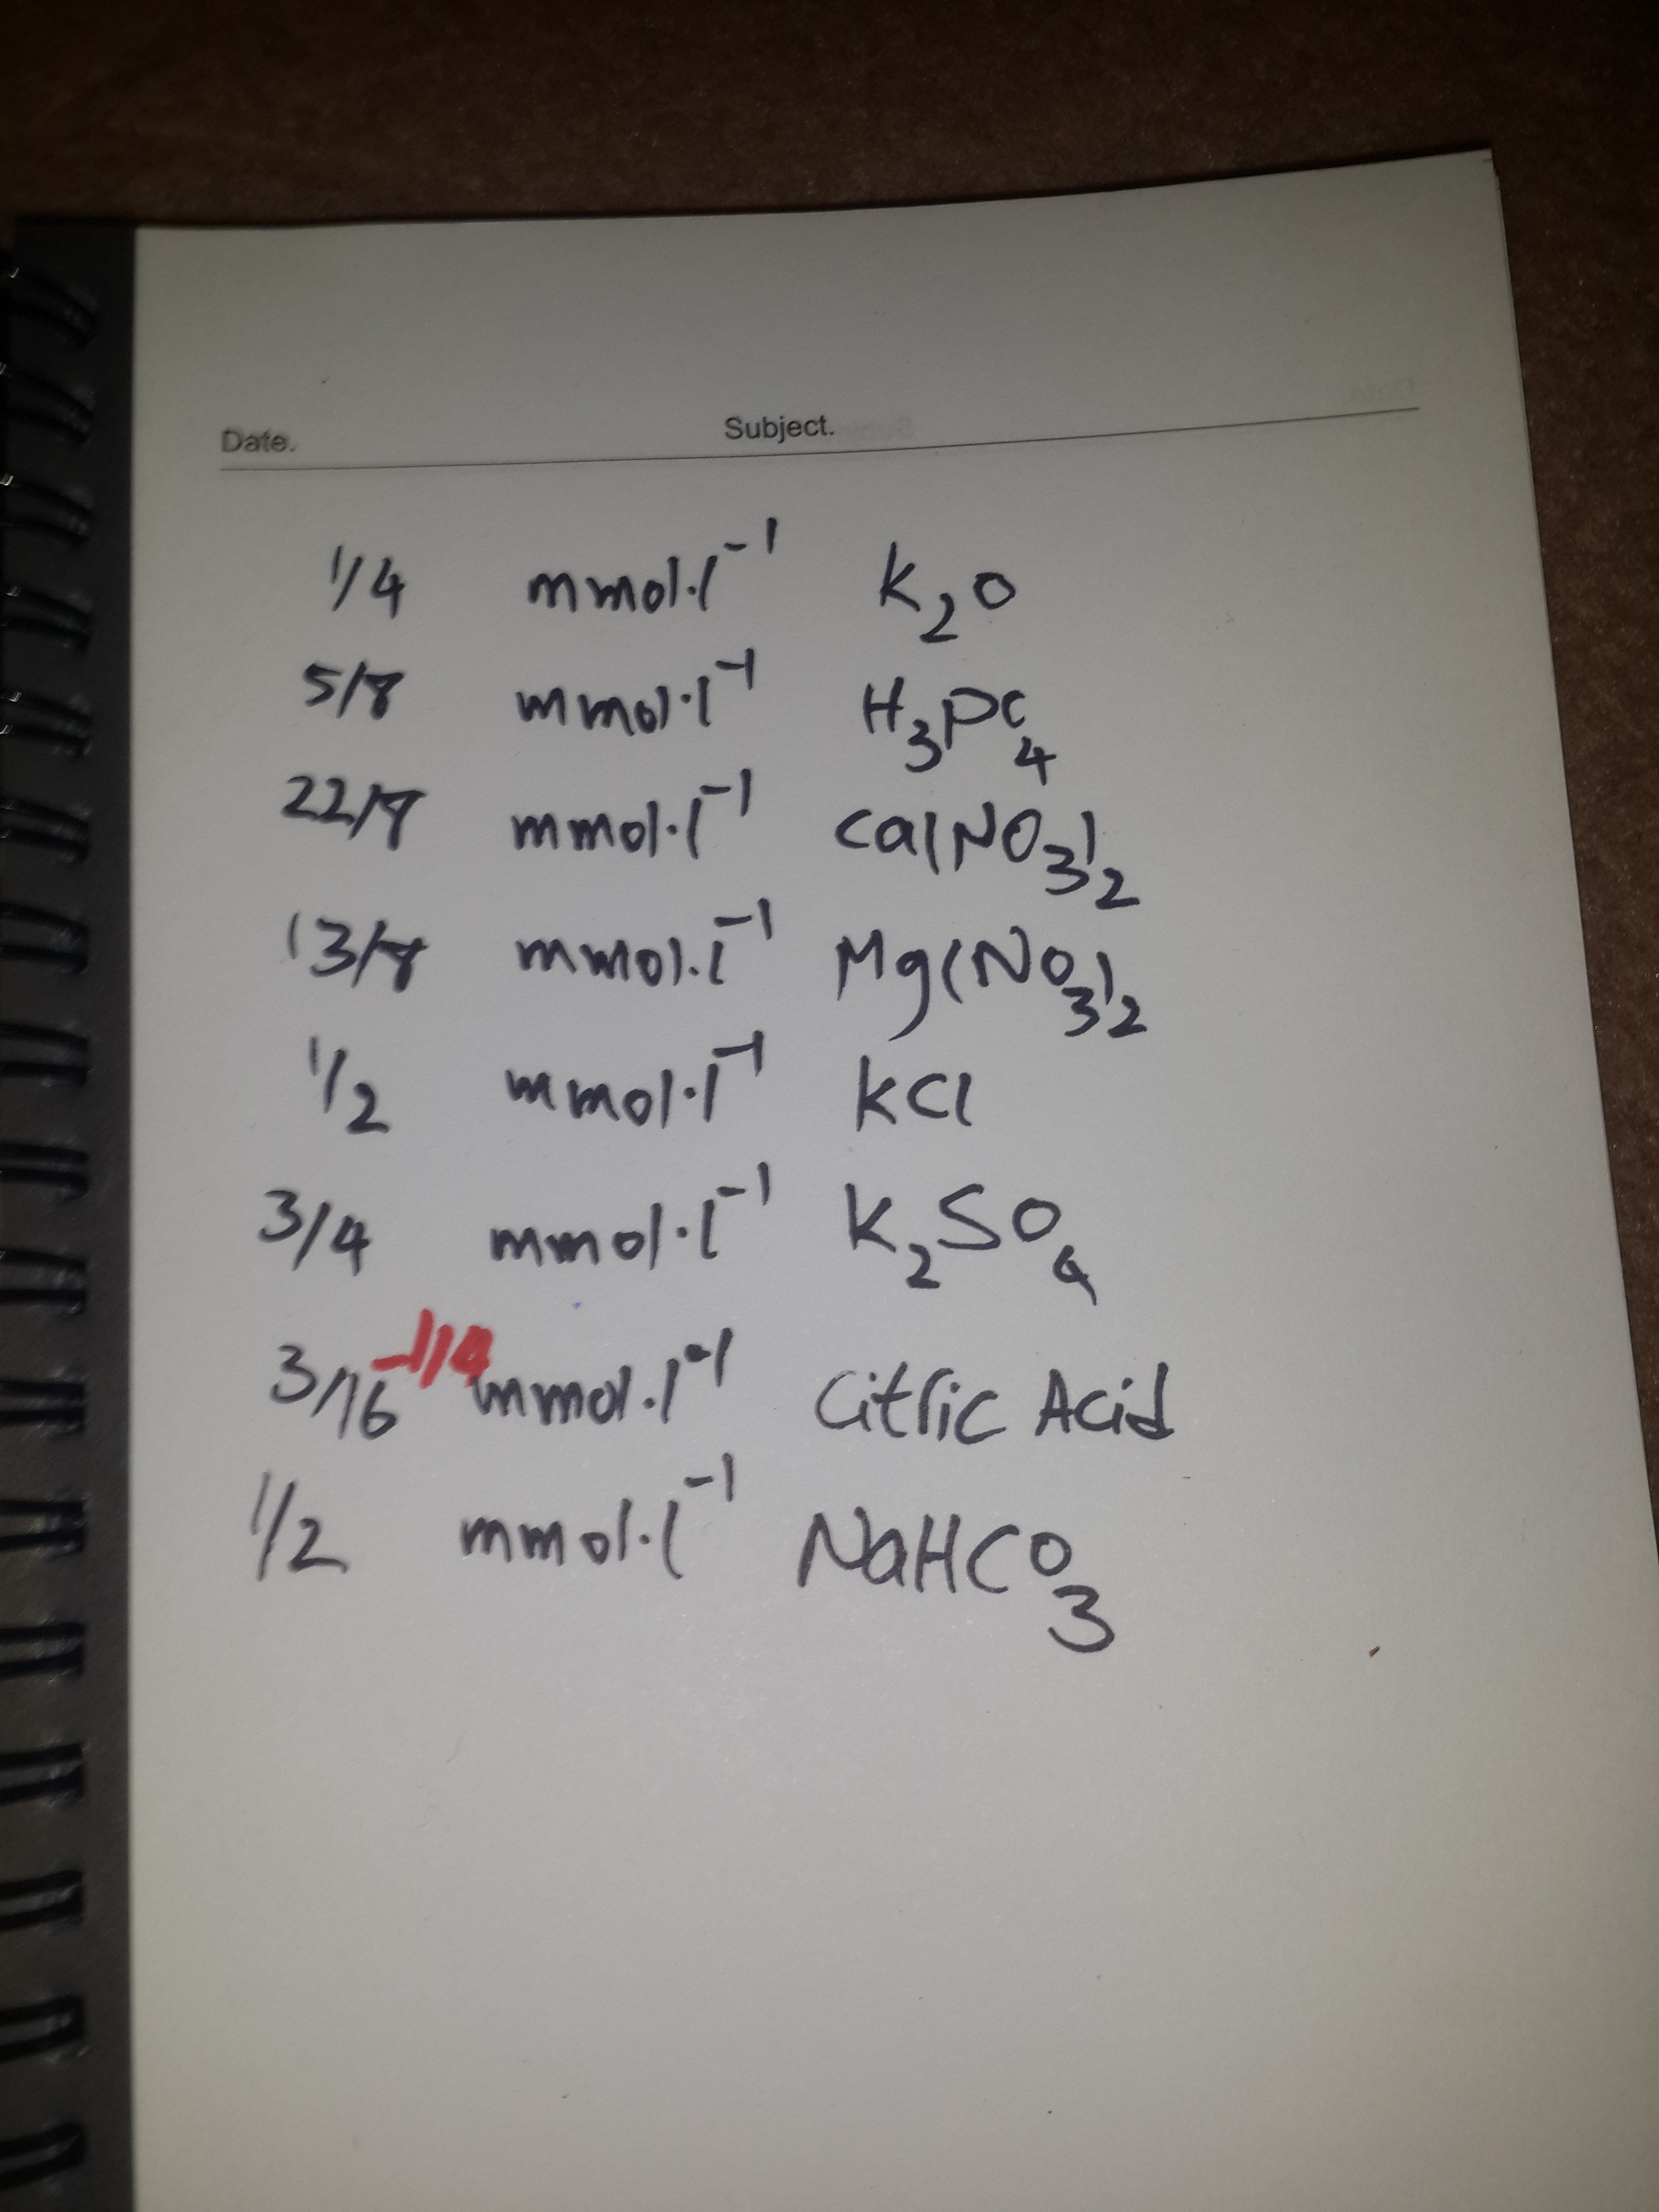 Date. Subject.
1/4 mmol·l⁻¹ K₂O
5/8 mmol·l⁻¹ H₃PO₄
22/8 mmol·l⁻¹ Ca(NO₃)₂
13/8 mmol·l⁻¹ Mg(NO₃)₂
1/2 mmol·l⁻¹ KCl
3/4 mmol·l⁻¹ K₂SO₄
3/16-1/4 mmol·l⁻¹ Citric Acid
1/2 mmol·l⁻¹ NaHCO₃